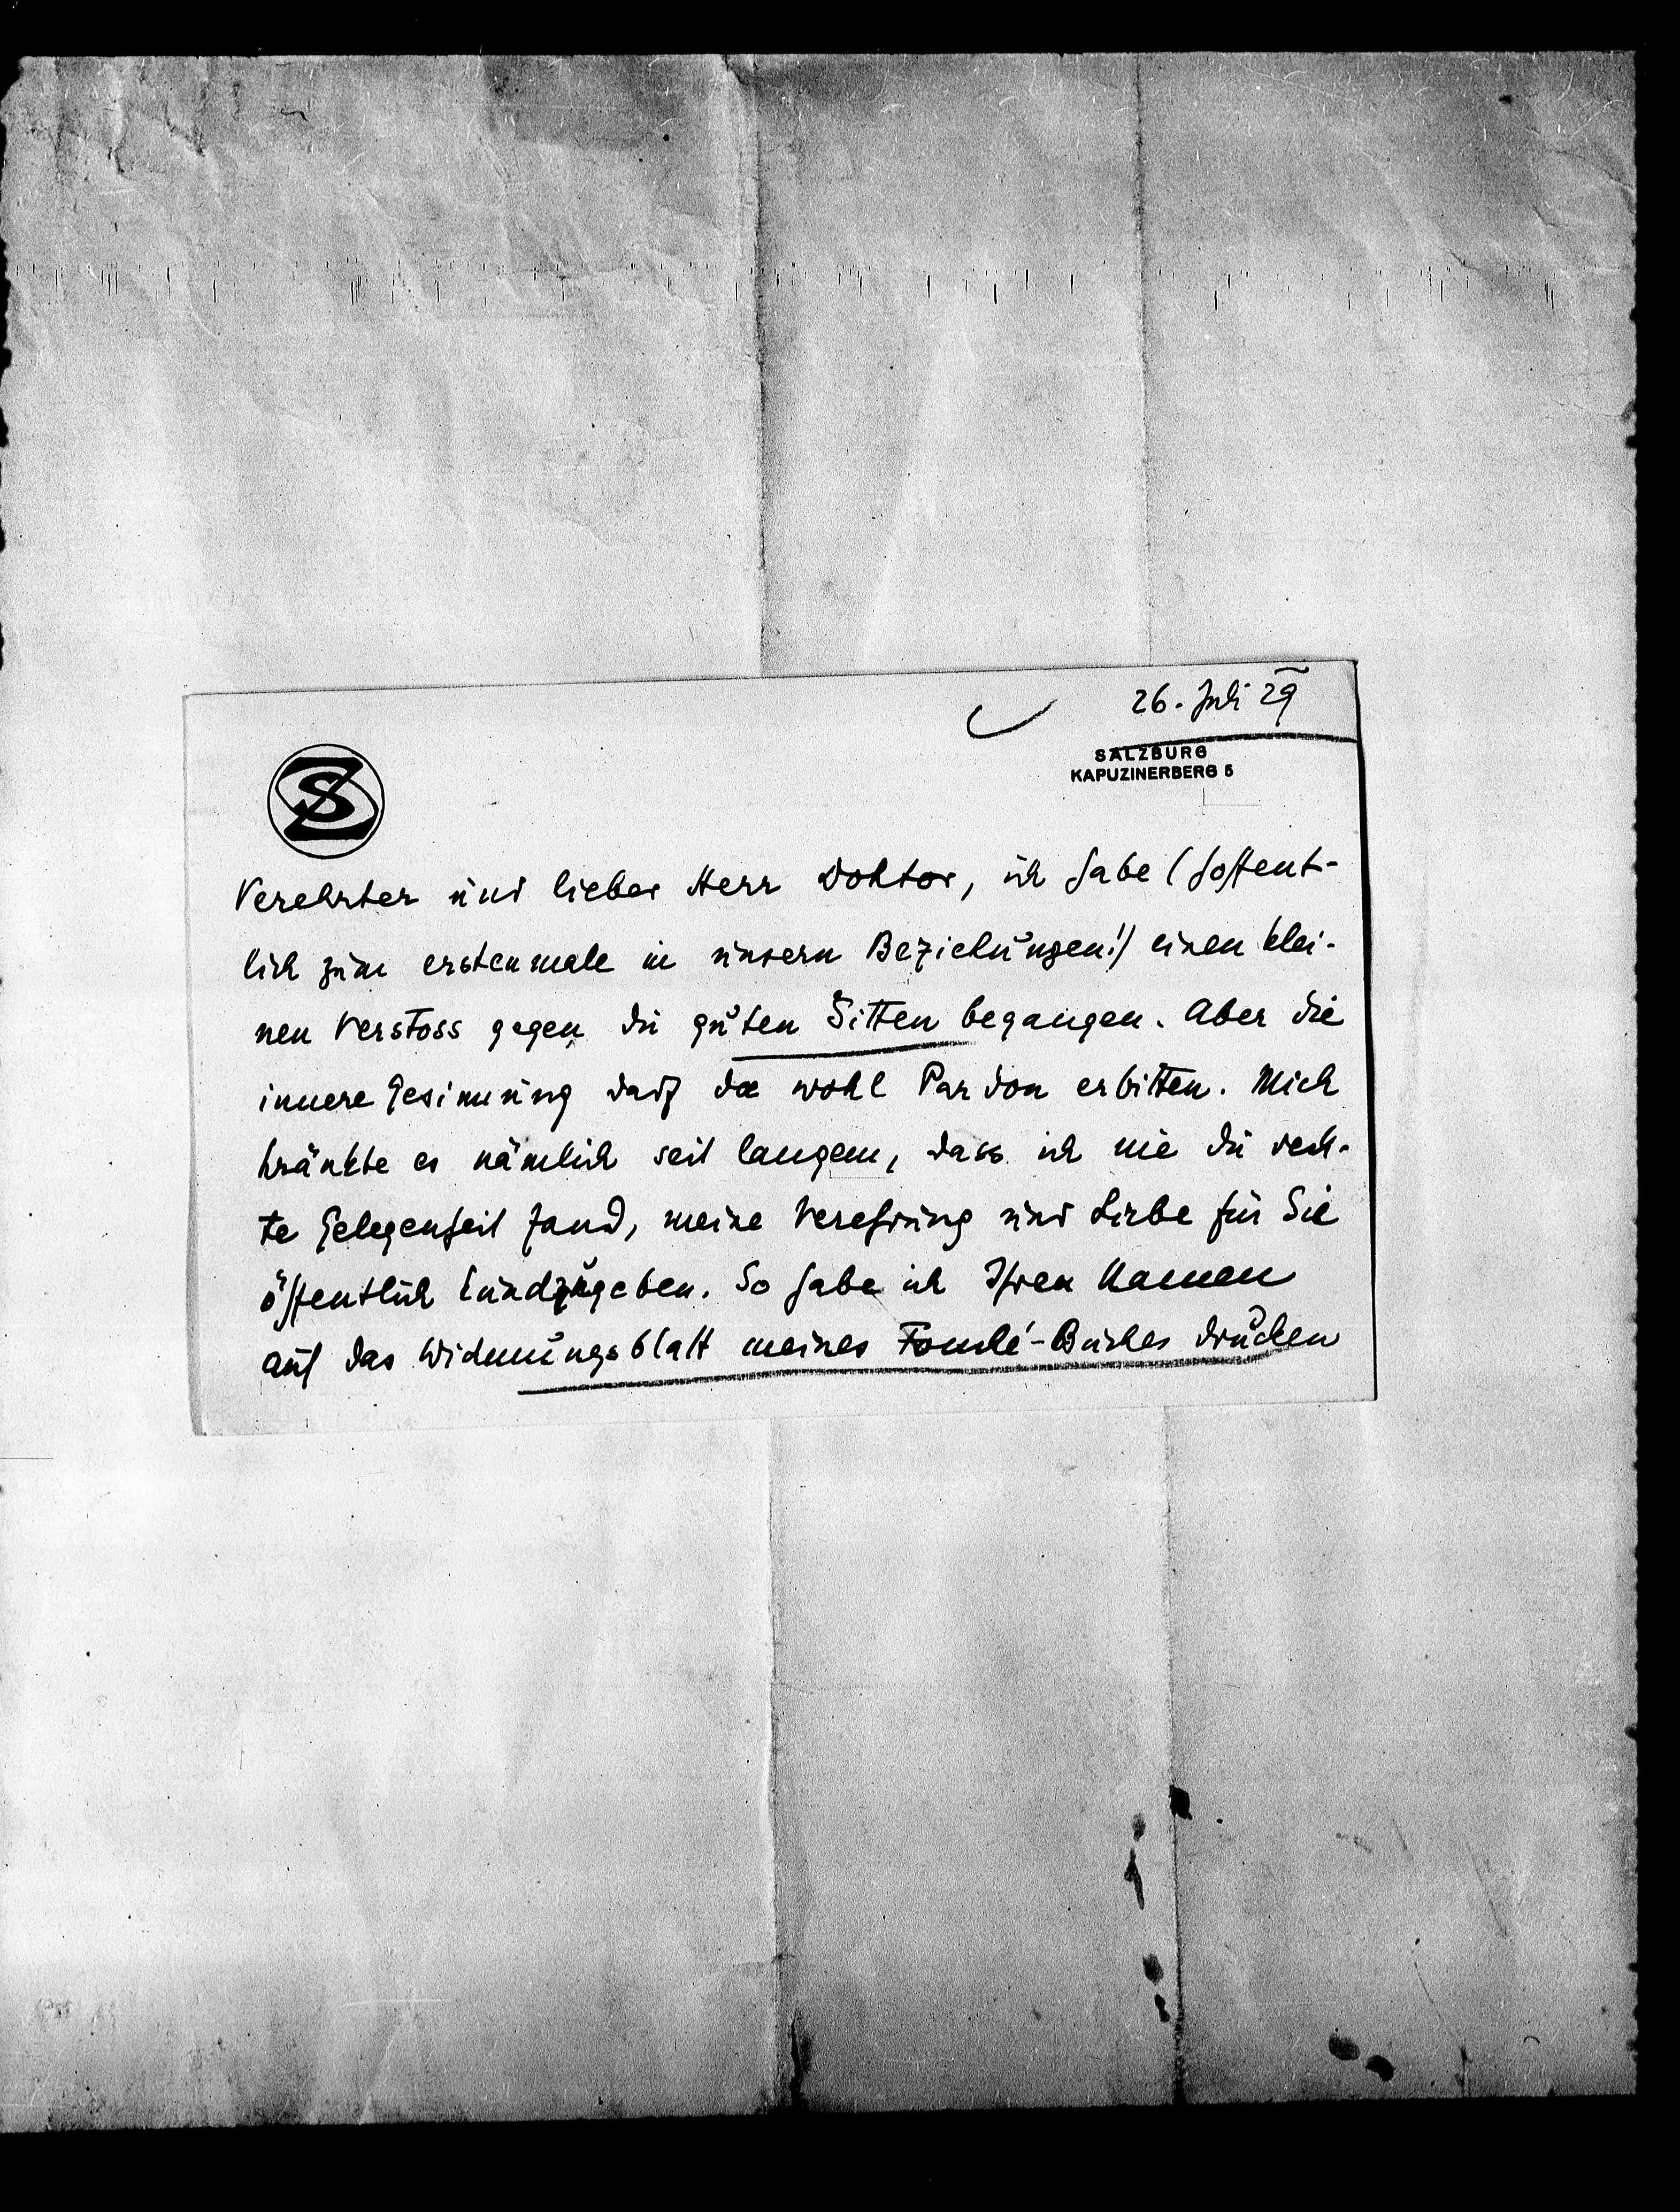 26. Juli 29
SZ
SALZBURG
KAPUZINERBERG 5
Verehrter und lieber Herr Doktor, ich habe (hoffent-
lich zum erstenmale in unsern Beziehungen!) einen klei-
nen Verstoss gegen die guten Sitten begangen. Aber die
innere Gesinnung darf da wohl Pardon erbitten. Mich
kränkte es nämlich seit langem, dass ich nie die rech-
te Gelegenheit fand, meine Verehrung und Liebe für Sie
öffentlich kundzugeben. So habe ich Ihren Namen
auf das Widmungsblatt meines Fouché-Buches drucken